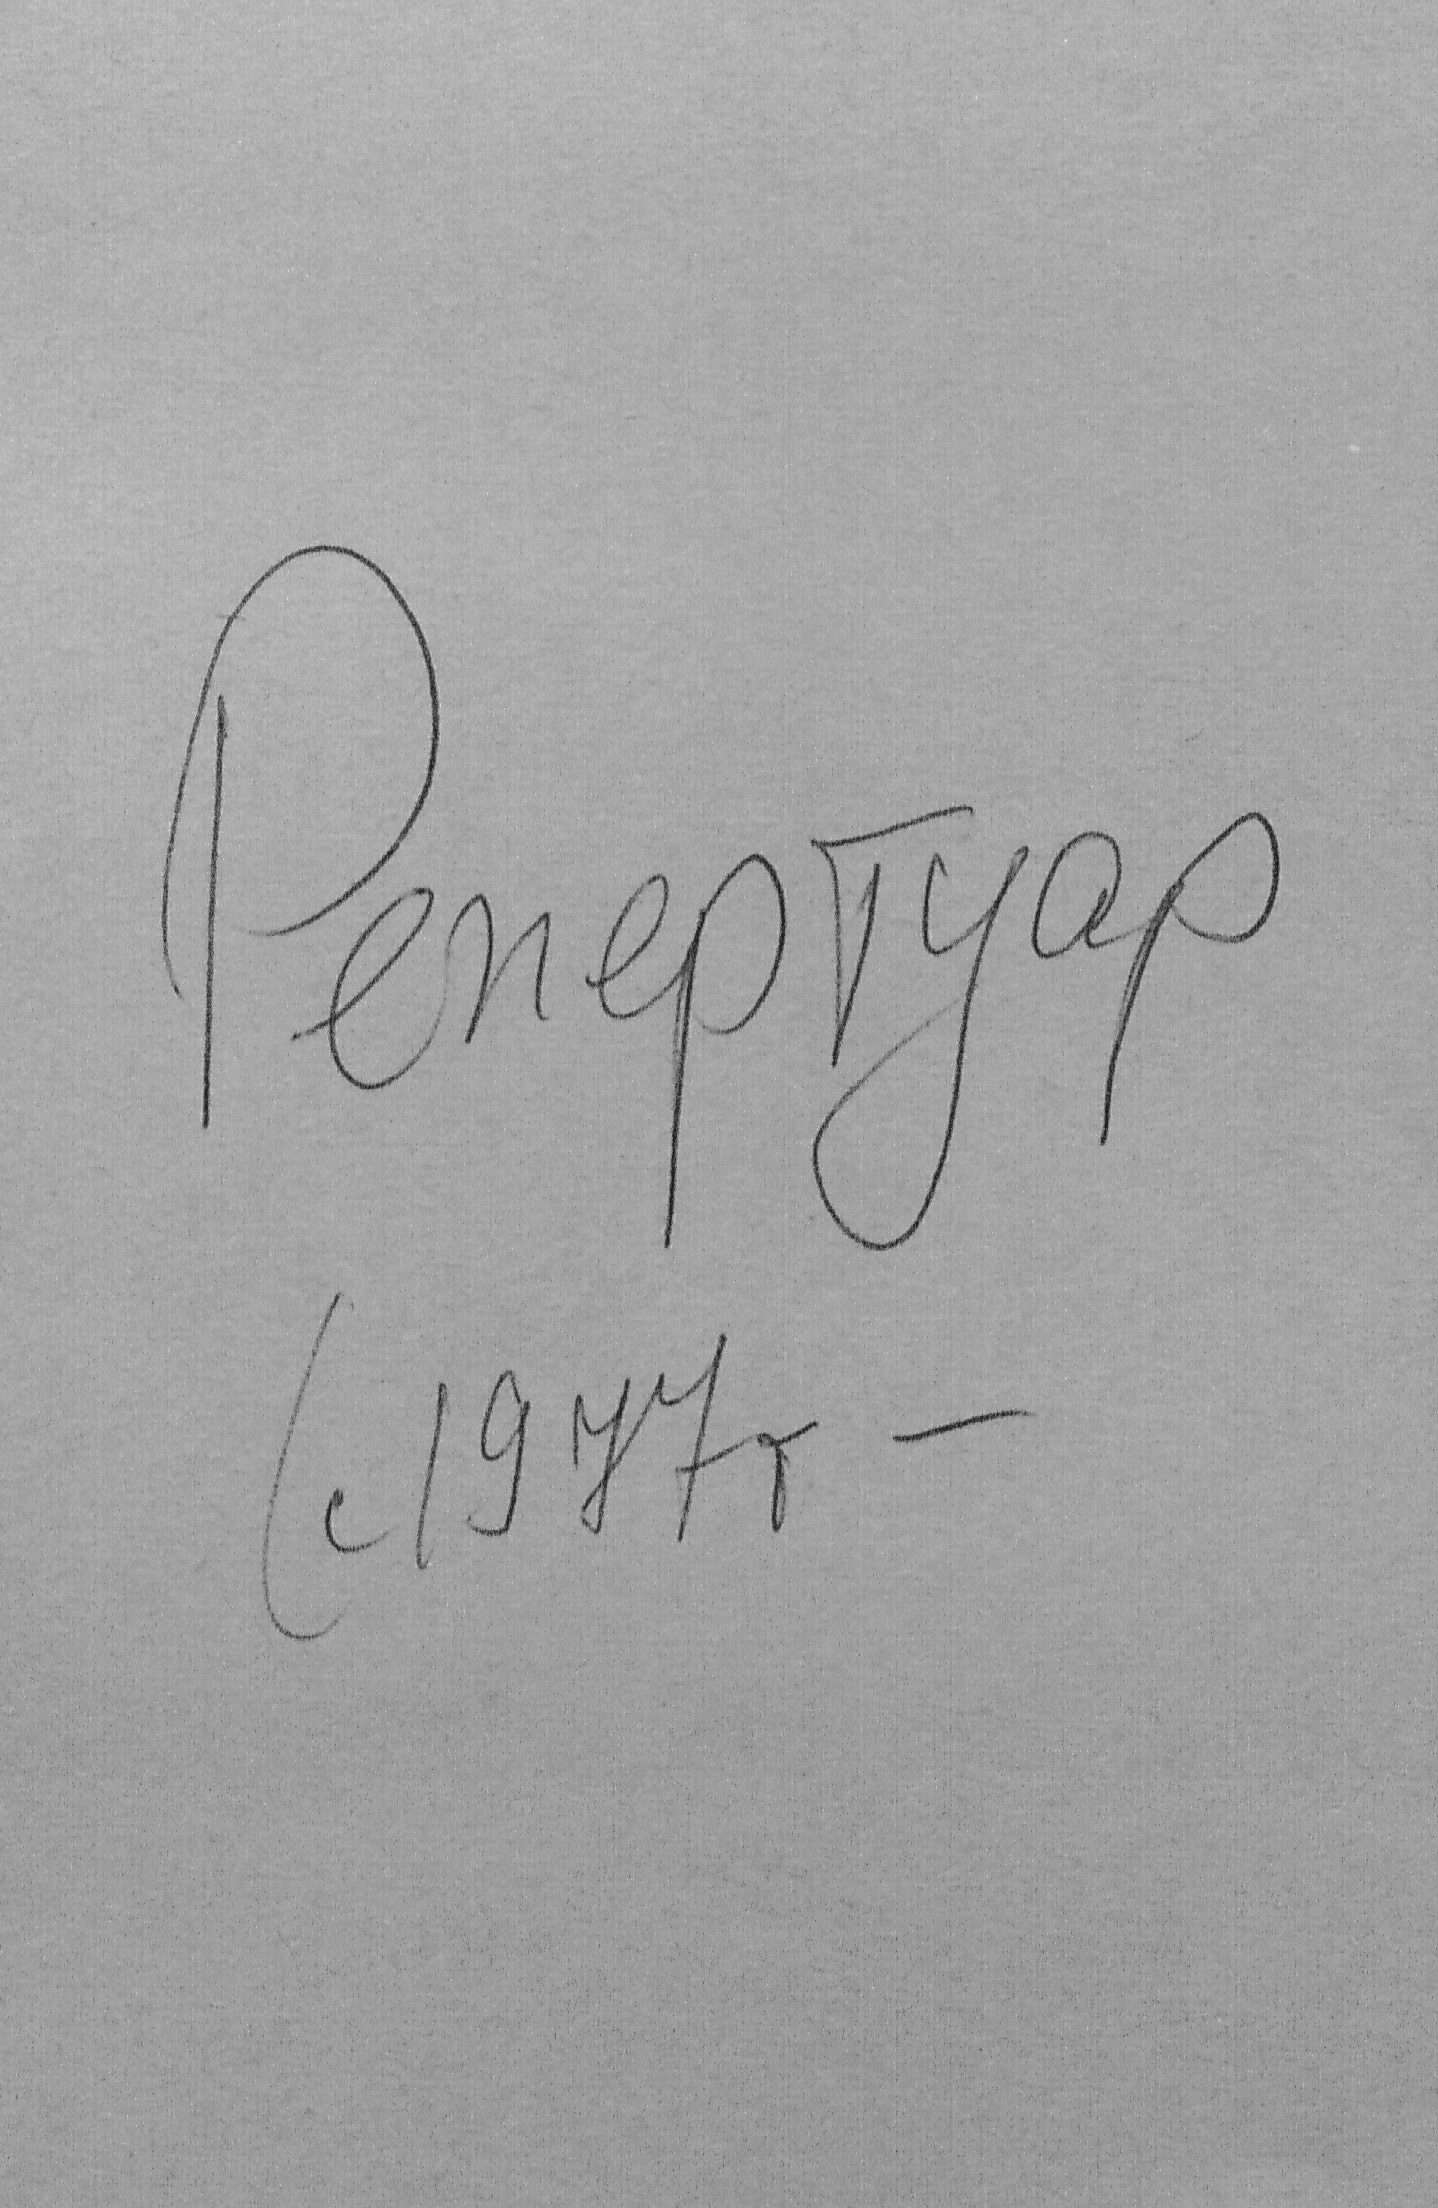 Репертуар
(с 1977г –